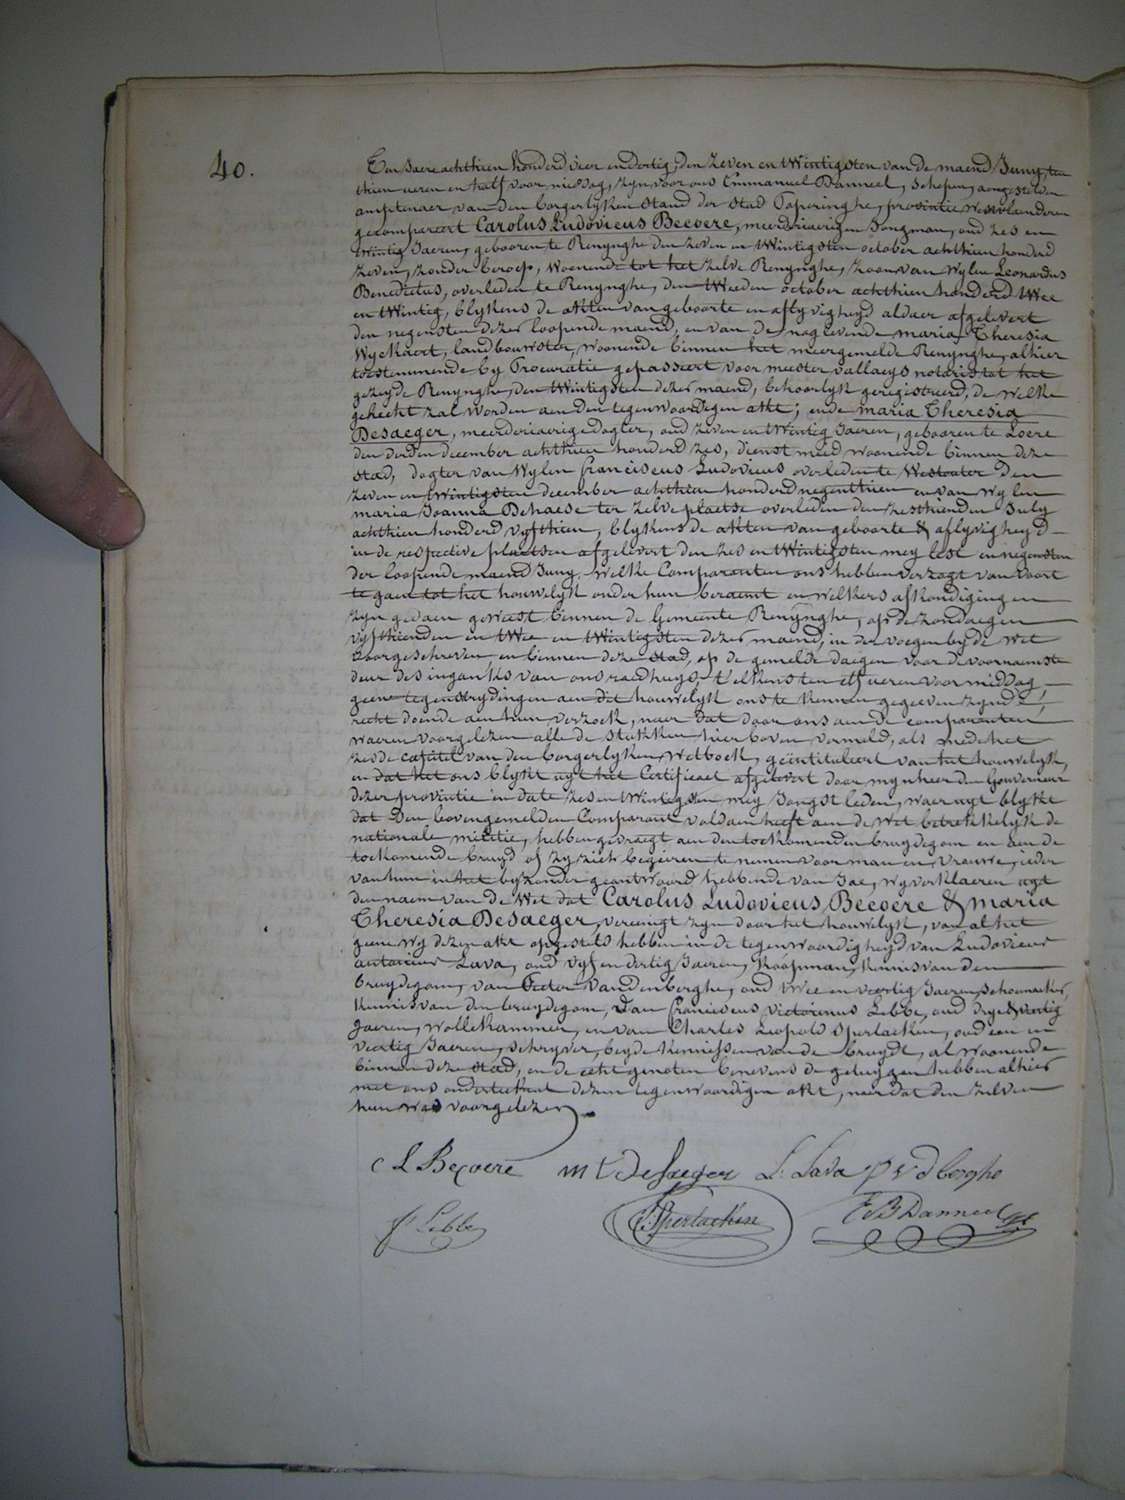 40.
Een Jaere achthien honderd vier en dertig, den zeven en twintigsten van de maend Juny, ten
thien ueren en half voor middag, zyn voor ons Emmanuel Danneel, Schepen, aengestelden
amptenaer van den borgerlyken stand der stad Poperinghe, provintie Westvlaenderen
gecompareert Carolus Ludovicus Beevere, meerderjarigen Jongman, oud zes en
twintig Jaeren, gebooren te Renynghe den zeven en twintigsten october achthien honderd
zeven, zonder beroep, woonende tot het zelve Renynghe, zoon van wylen Leonardus
Benedictus, overleden te Renynghe, den tweeden october achthien honderd twee
en twintig, blykens de akten van geboorte en aflyvigheyd aldaer afgelevert
den negensten dezer loopende maend, en van de nagelevende maria Theresia
Wyckaert, landbouwster, woonende binnen het meergemelde Renynghe, alhier
toestemmende by Procuratie gepasseert voor meester vallaeys notaris tot het
gezeyde Renynghe, den twintigsten dezer maend, behoorlyk geregistreerd, de welke
gehecht zal worden aen den tegenwoordigen akt; ende maria Theresia
Desaeger, meerderjaerige dogter, oud zeven en twintig Jaeren, gebooren te Loere
den derden december achthien honderd zes, dienstmeid woonende binnen deze
stad, dogter van wylen franciscus Ludovicus overleden te Westouter den
zeven en twintigsten december achthien honderd negenthien en van wylen
maria Joanna Dehaese ter zelve plaetse overleden den zesthienden July
achthien honderd vyfthien, blykens de akten van geboorte & aflyvigheyd
in de respective plaetsen afgelevert den zes en twintigsten mey lest en negensten
der loopende maend Juny. Welke Comparanten ons hebben verzogt van voort
te gaen tot het houwelyk onder hun beraemt en welkers afkondigingen
zyn gedaen geweest binnen de Gemeente Renynghe, op de zondaegen
vyfthienden en twee en twintigsten dezer maend, in der voegen by de wet
voorgeschreven, en binnen deze stad, op de gemelde daegen voor de voornaemste
deur des inganks van ons raedhuys, telkens ten elf ueren voormiddag,
geene tegenstrydingen aen dit houwelyk ons te kennen gegeeven zynde,
recht doende aen hun verzoek, naer dat door ons aen de comparanten
waeren voorgelezen alle de stukken hier boven vermeld, als mede het
zesde capittel van den borgerlyken Wetboek, geintituleert van het houwelyk,
en dat het ons blykt uyt het Certificaet afgelevert door mynheer den Gouverneur
dezer provintie in date zes en twintigsten mey Jongst leden, waer uyt blykt
dat den bovengemelden Comparant voldaen heeft aen de wet betrekkelyk de
nationale militie, hebben gevraegt aen den toekomenden bruydegom en aen de
toekomende bruyd of zy zich begeeren te nemen voor man en vrouwe, ieder
van hun in het byzonder geantwoord hebbende van Jae, wy verklaeren uyt
den naem van de Wet dat Carolus Ludovicus Beevere & maria
Theresia Desaeger, vereenigt zyn door het houwelyk, van al het
gene wy dezen akt opgestelt hebben in de tegenwoordigheyd van Ludovicus
antonius Lava, oud vyf en dertig Jaeren, Koopman, Kennis van den
bruydegom, van Pieter Vandenberghe, oud twee en veertig Jaeren, schoenmaker,
Kennis van den bruydegom, van franciscus victorinus Lebbe, oud drye & veertig
Jaeren, wollekammer, en van Charles Leopold Sperlaeken, oud een en
veertig Jaeren, schryver, beyde kennissen van de bruydt, al woonende
binnen deze stad, en de echtgenoten benevens de getuygen hebben alhier
met ons onderteekent dezen tegenwoordigen akt, naer dat den zelven
hun was voorgelezen.
C L Beevere m t Desaeger L. Lava P v d berghe
f Lebbe Sperlaeken E B Danneel